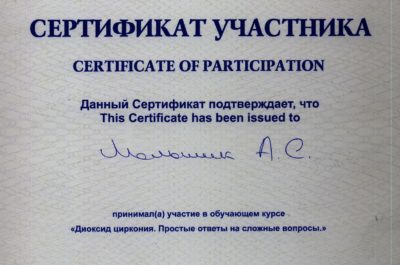 СЕРТИФИКАТ УЧАСТНИКА
CERTIFICATE OF PARTICIPATION
Данный Сертификат подтверждает, что
This Certificate has been issued to
А.С.
принимал(а) участие в обучающем курсе
«Диоксид циркония. Простые ответы на сложные вопросы.»